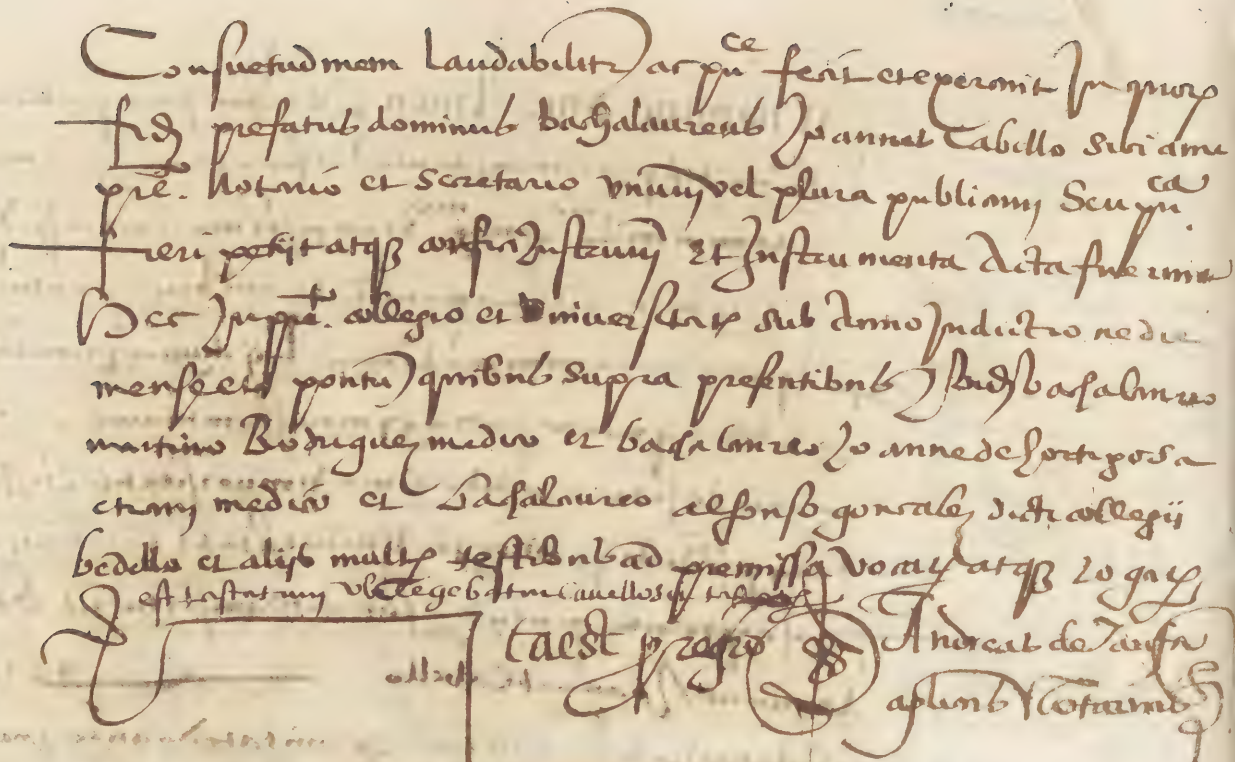 Consuetudinem laudabilitr ac puce fecit et exercuit In quorꝫ
fidem prefatus dominus bachalaureus Joannes Cabillo sibi a me
pre. notario et secretario vnum vel plura publicum seu puca
fieri petijt atqꝫ confici Instrum et Instrumenta Acta fuerunt
Hec In ppto. collegio et vniversitatꝫ sub Anno Indictione die
mense et pontu quibus supra presentibus Ibidem bachalaureo
martino Rodriguez medico et bachalaureo Joanne de hortigosa
etiam medico et bachalaureo alfonso goncalez dicti collegii
bedello et alijs multꝫ testibus ad premissa vocatꝫ atqꝫ rogatꝫ
est testatum vbi legebatur
Ita est p regro Andreas de
aplicus Notarius